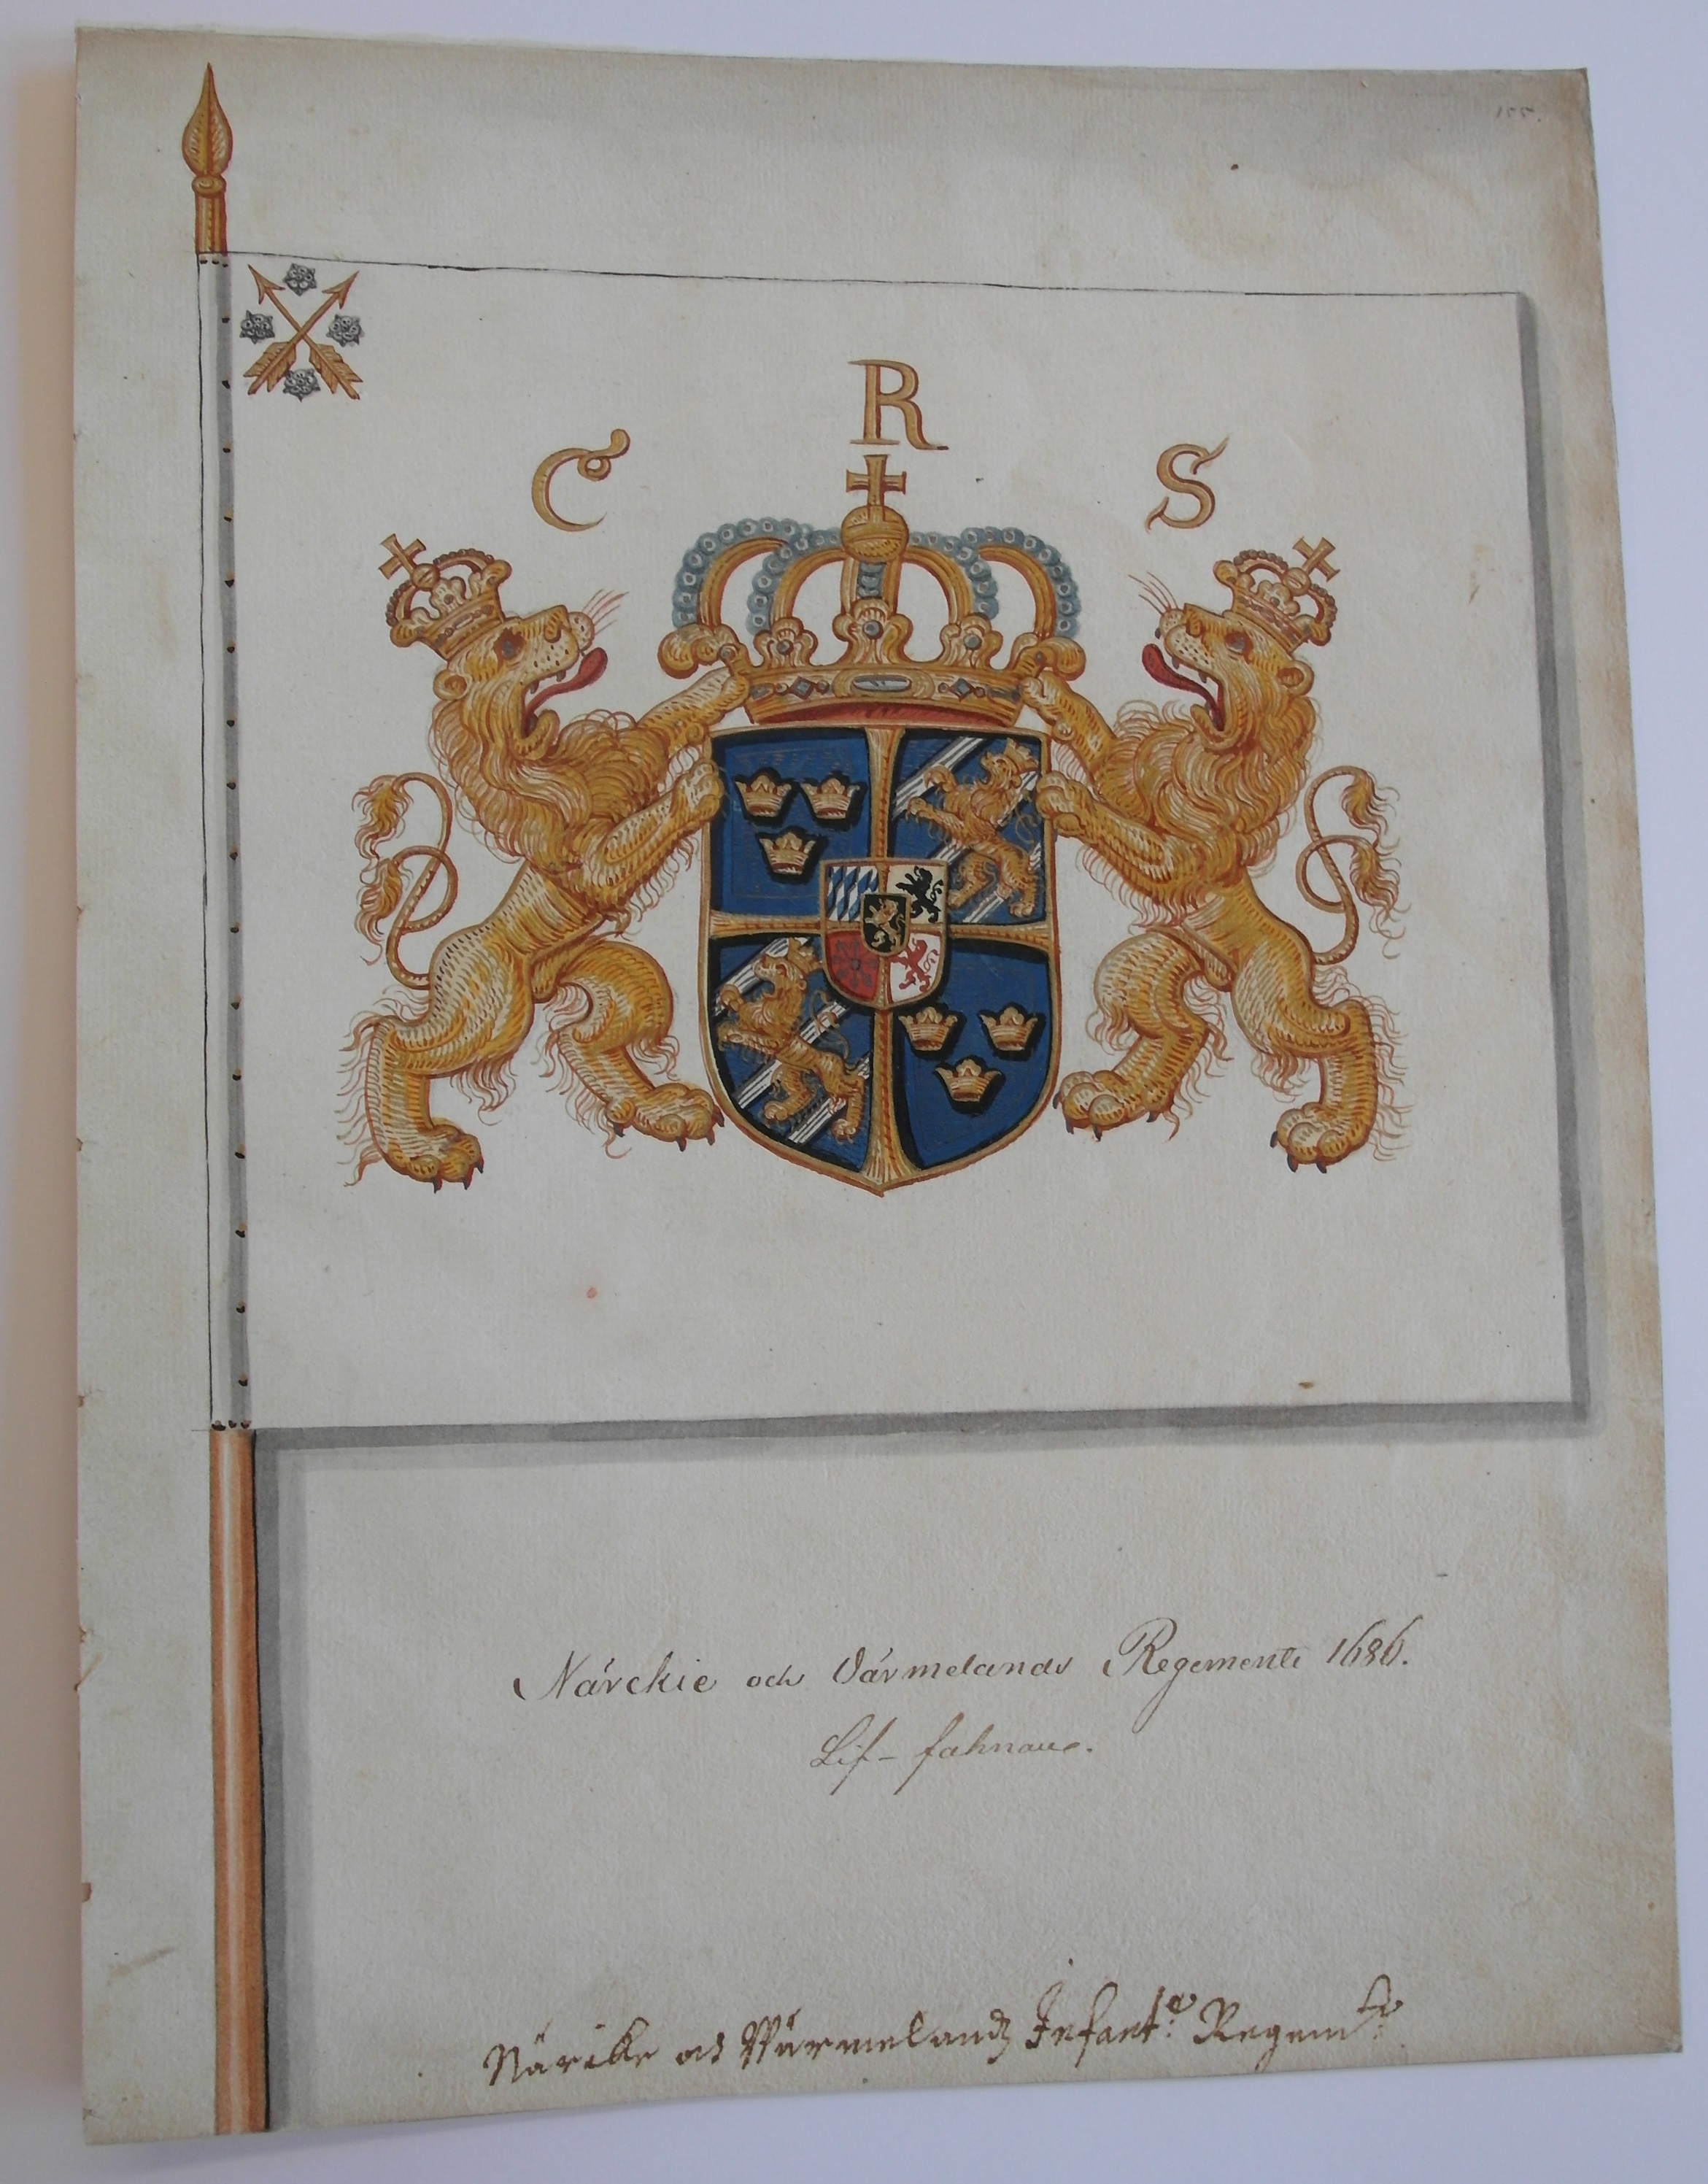 155.
C R S
Närckie och Värmelands Regemente 1686.
Lif-fahnan.
Närike och Wärmelandz Infant:e Regem:te